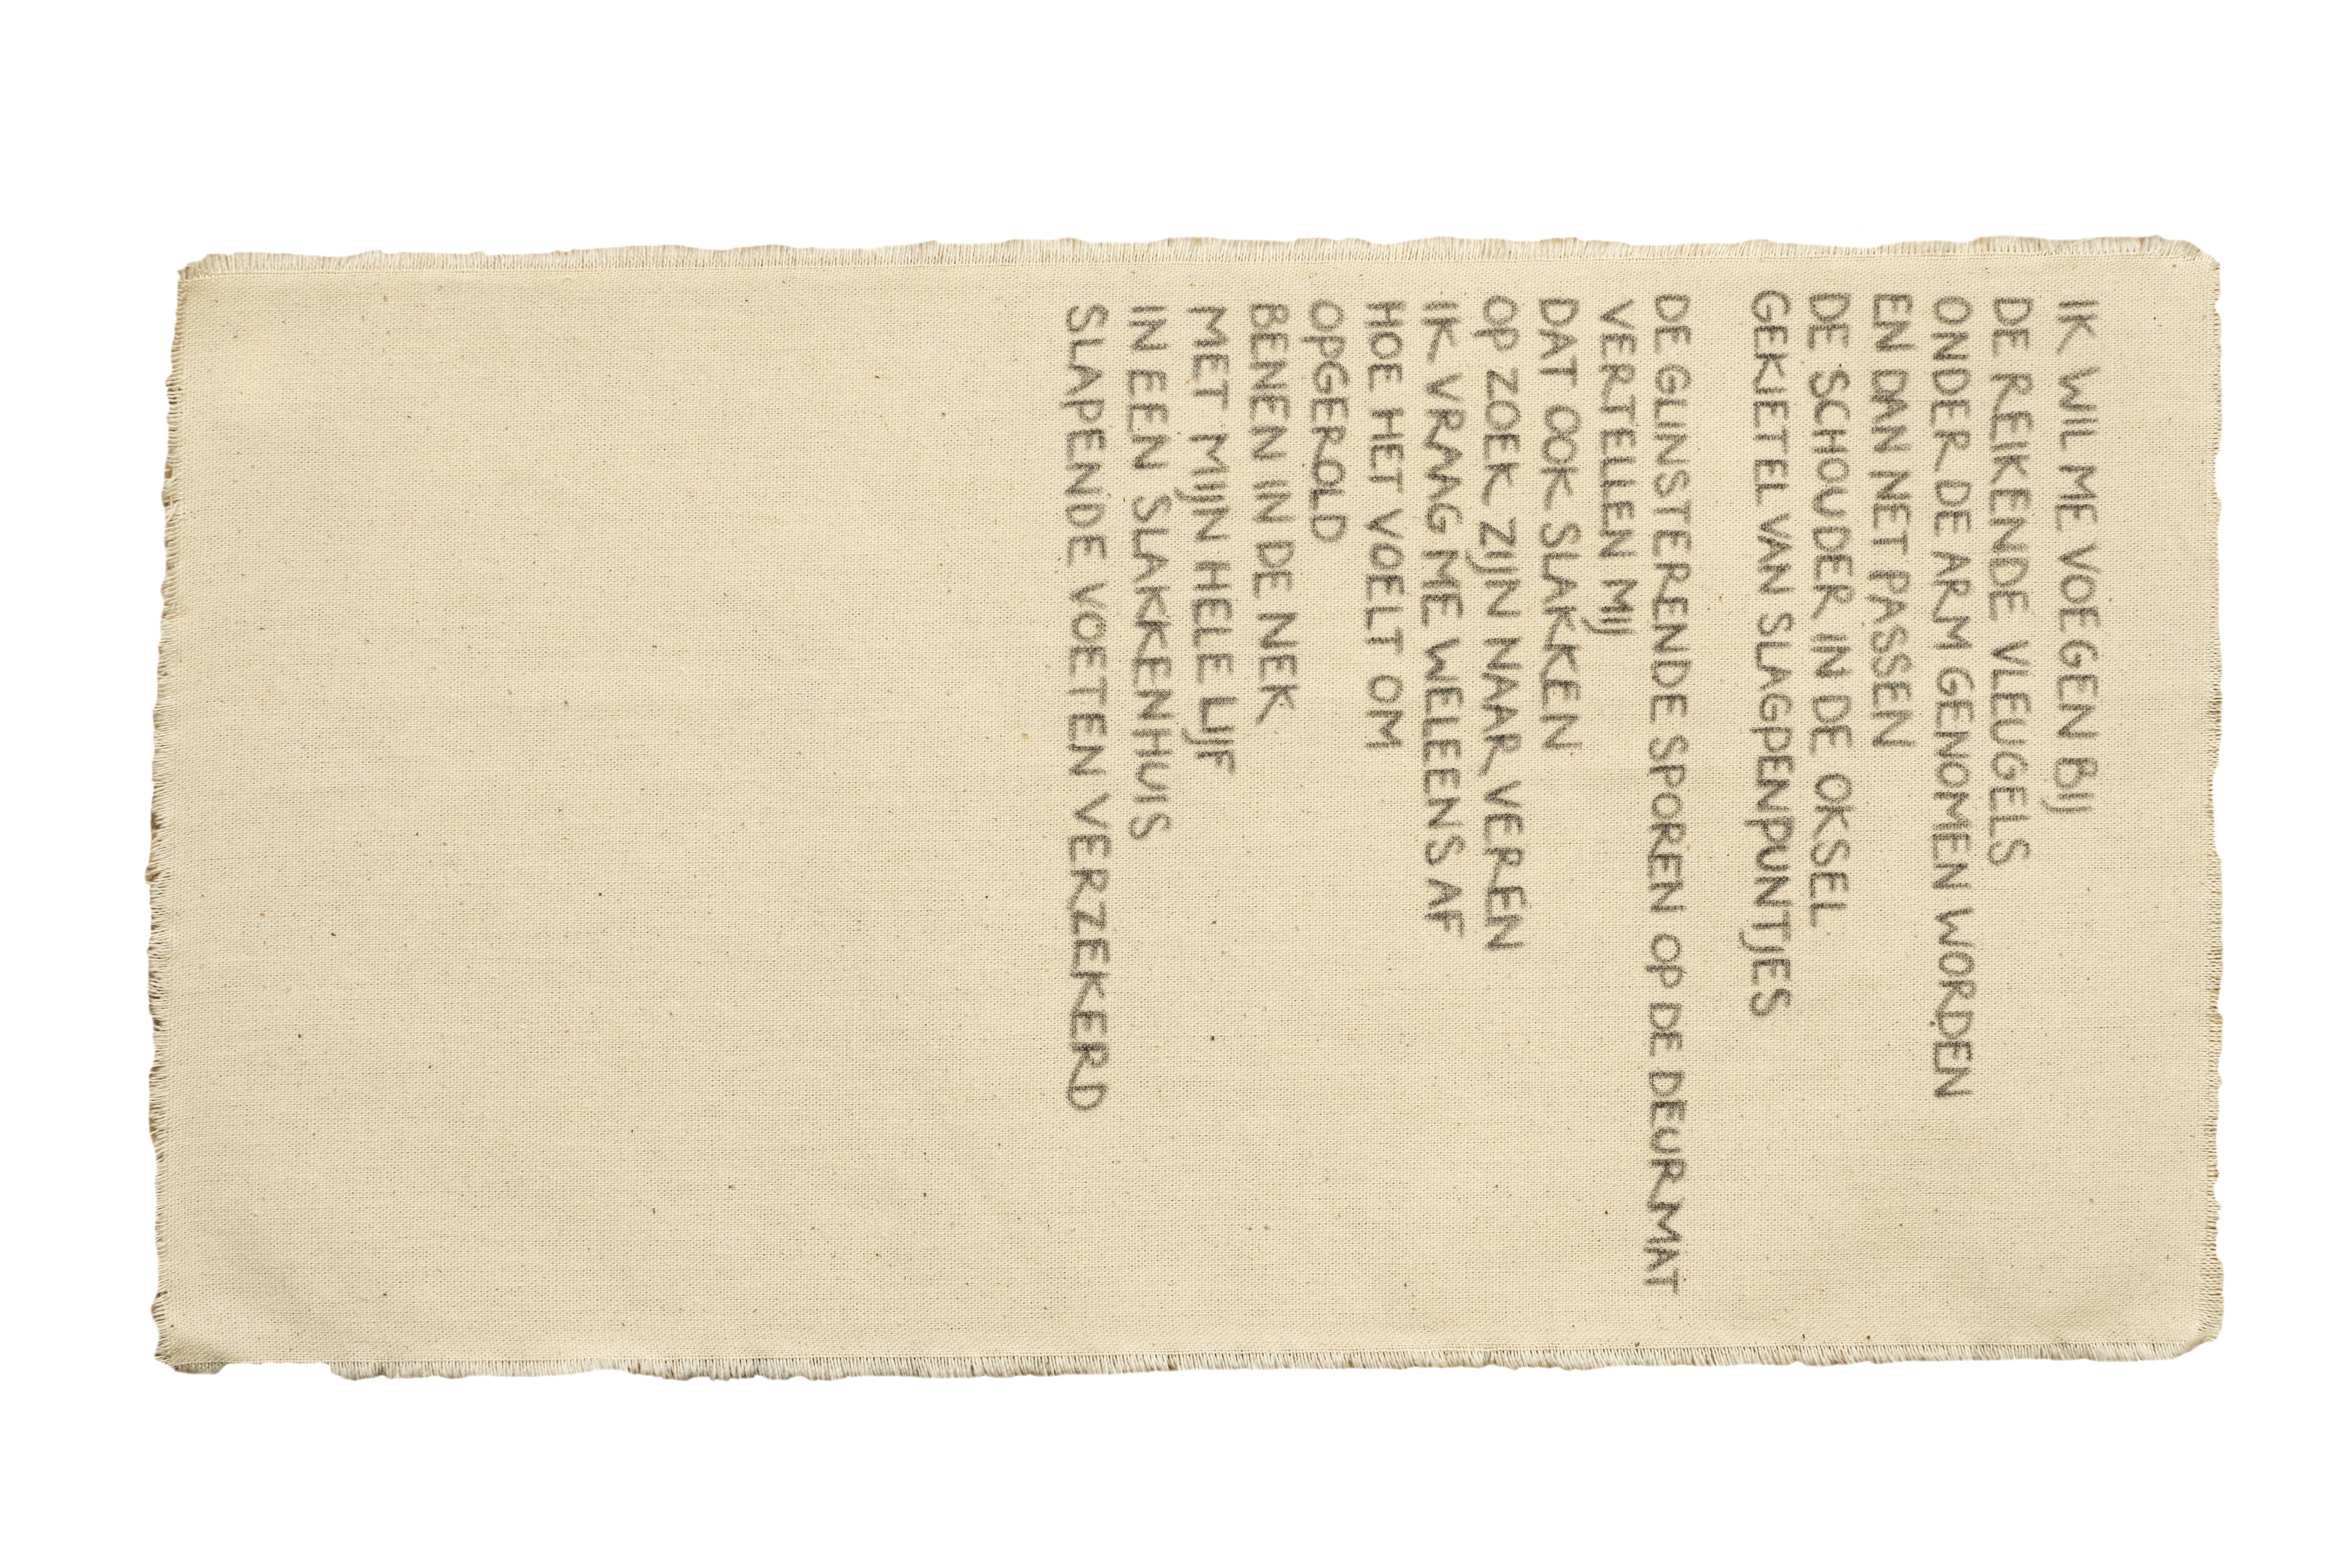 IK WIL ME VOEGEN BIJ
DE REIKENDE VLEUGELS
ONDER DE ARM GENOMEN WORDEN
EN DAN NET PASSEN
DE SCHOUDER IN DE OKSEL
GEKIETEL VAN SLAGPENPUNTJES
DE GLINSTERENDE SPOREN OP DE DEURMAT
VERTELLEN MIJ
DAT OOK SLAKKEN
OP ZOEK ZIJN NAAR VEREN
IK VRAAG ME WELEENS AF
HOE HET VOELT OM
OPGEROLD
BENEN IN DE NEK
MET MIJN HELE LIJF
IN EEN SLAKKENHUIS
SLAPENDE VOETEN VERZEKERD